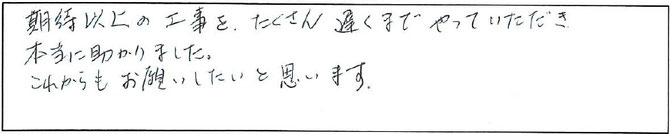 期待以上の工事を、たくさん遅くまでやっていただき
本当に助かりました。
これからもお願いしたいと思います。